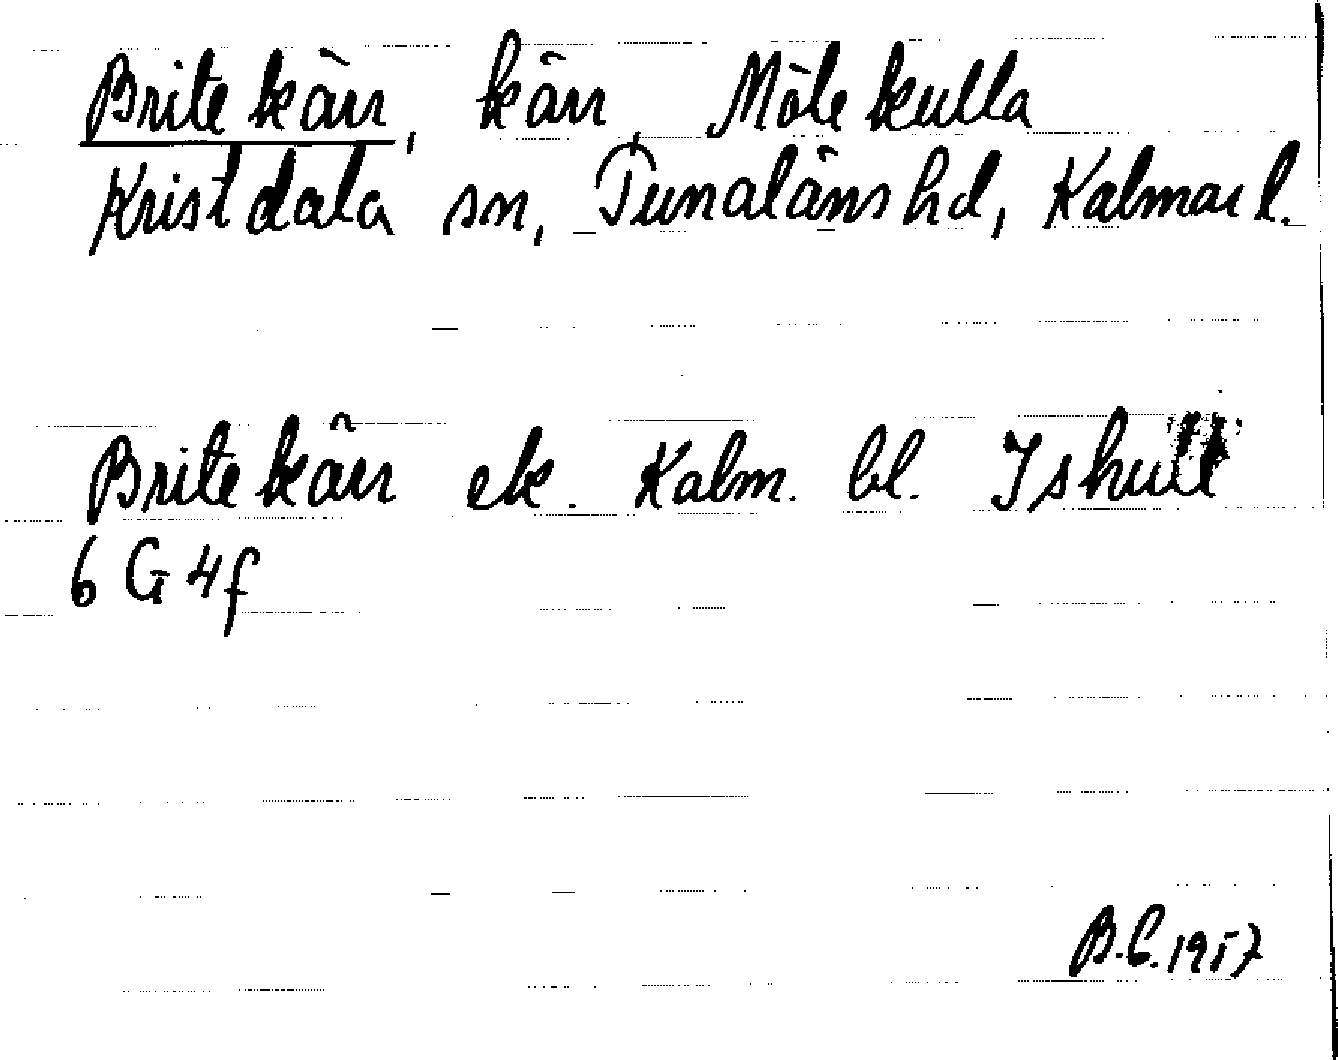 Britekärr, kärr, Mölekulla
Kristdala sn, Tunaläns hd, Kalmar l.
Britekärr ek. Kalm. bl. Ishult
6 G 4f
B.E. 1957